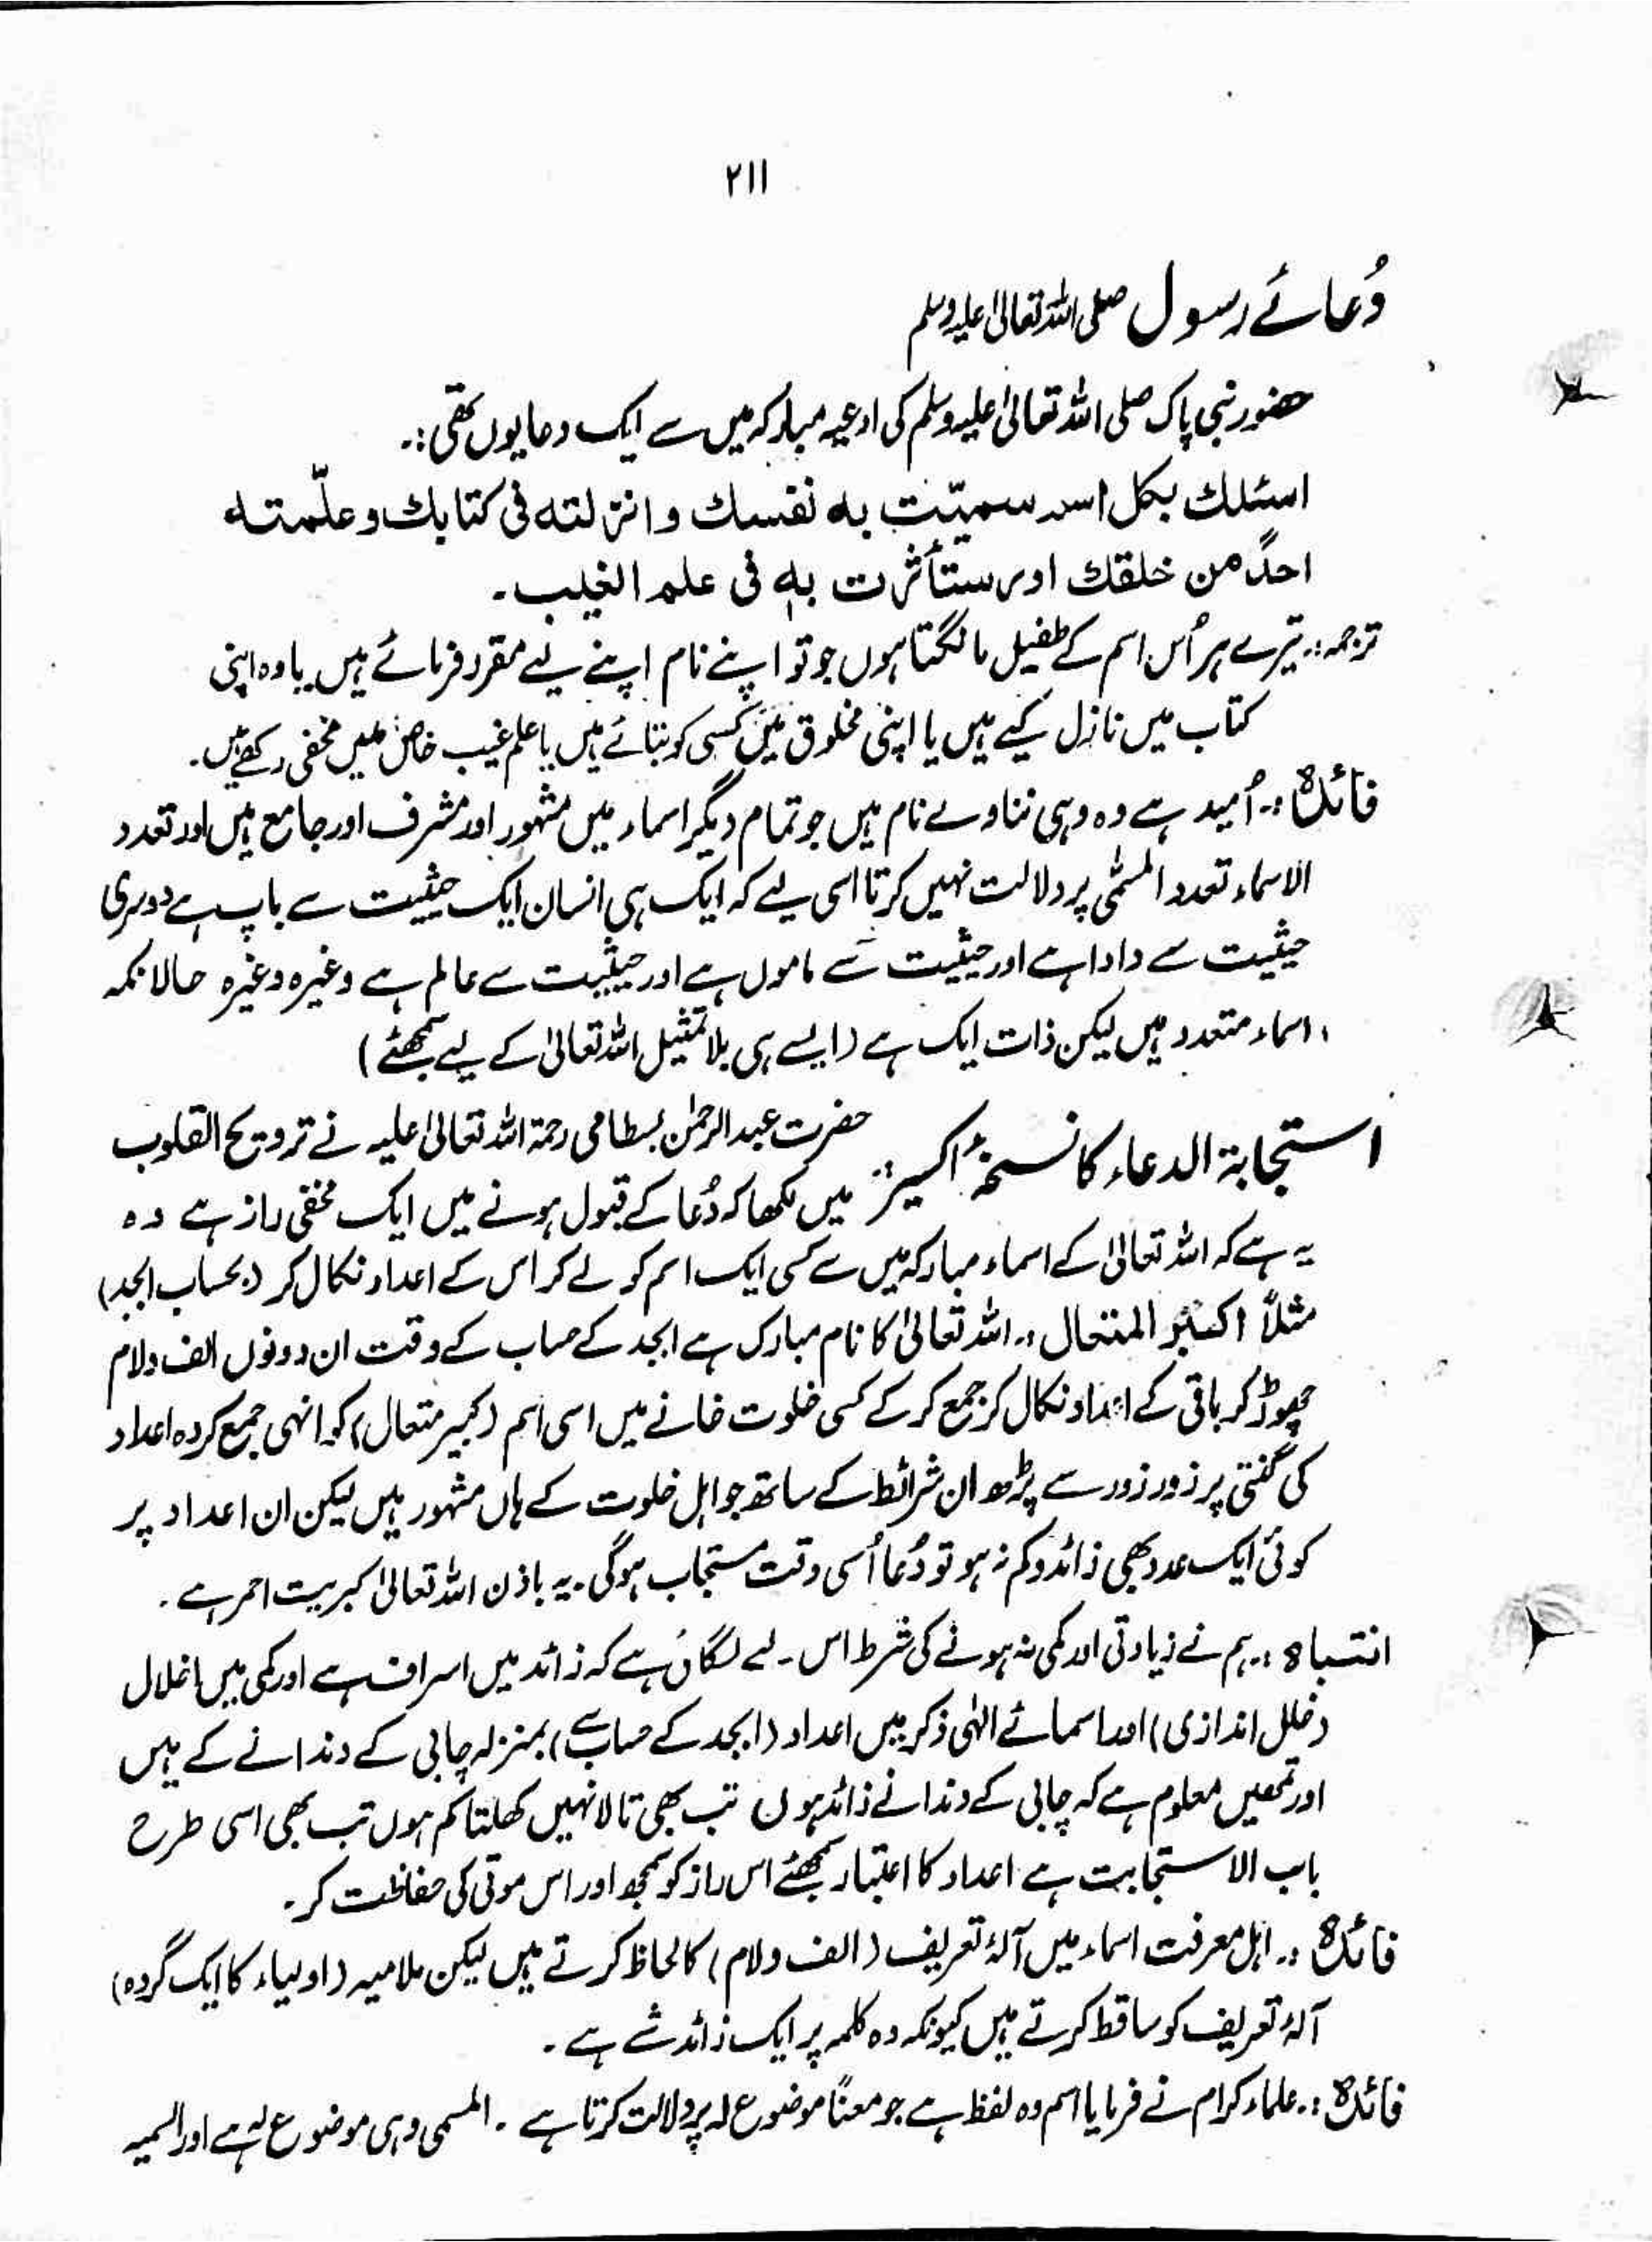 ۲۱۱
دُعائے رسول صلی اللہ تعالیٰ علیہ وسلم
حضور نبی پاک صلی اللہ تعالیٰ علیہ وسلم کی ادعیہ مبارکہ میں سے ایک دعا یوں تھی :۔
اسئلك بكل اسم سميّت به نفسك و انزلته فى كتابك و علّمته
احدًا من خلقك او استأثرت به فى علم الغيب ۔
ترجمہ :۔ تیرے ہر اُس اسم کے طفیل مانگتا ہوں جو تو اپنے نام اپنے لیے مقرر فرمائے ہیں یا وہ اپنی
کتاب میں نازل کیے ہیں یا اپنی مخلوق میں کسی کو بتائے ہیں یا علم غیب خاص میں مخفی رکھے ہیں ۔
فائدہ :۔ اُمید ہے وہ وہی ننانوے نام ہیں جو تمام دیگر اسماء میں مشہور اور مشرف اور جامع ہیں اور تعدد
الاسماء تعدد المسمّٰی پر دلالت نہیں کرتا اسی لیے کہ ایک ہی انسان ایک حیثیت سے باپ ہے دوسری
حیثیت سے دادا ہے اور حیثیت سے ماموں ہے اور حیثیت سے عالم ہے وغیرہ وغیرہ حالانکہ
اسماء متعدد ہیں لیکن ذات ایک ہے (ایسے ہی بلا تمثیل اللہ تعالیٰ کے لیے سمجھئے)
استجابۃ الدعاء کا نسخۂ اکسیر :۔ حضرت عبدالرحمٰن بسطامی رحمۃ اللہ تعالیٰ علیہ نے ترویح القلوب
میں لکھا کہ دُعا کے قبول ہونے میں ایک مخفی راز ہے وہ
یہ ہے کہ اللہ تعالیٰ کے اسماء مبارکہ میں سے کسی ایک اسم کو لے کر اس کے اعداد نکال کر (بحساب ابجد)
مثلاً اکبیر المتعال :۔ اللہ تعالیٰ کا نام مبارک ہے ابجد کے حساب کے وقت ان دونوں الف ولام
چھوڑ کر باقی کے اعداد نکال کر جمع کر کے کسی خلوت خانے میں اسی اسم (کبیر متعال) کو انہی جمع کردہ اعداد
کی گنتی پر زور زور سے پڑھو ان شرائط کے ساتھ جو اہل خلوت کے ہاں مشہور ہیں لیکن ان اعداد پر
کوئی ایک عدد بھی زائد و کم نہ ہو تو دُعا اُسی وقت مستجاب ہوگی ۔ یہ باذن اللہ تعالیٰ کبریت احمر ہے ۔
انتباہ :۔ ہم نے زیادتی اور کمی نہ ہونے کی شرط اس لیے لگائی ہے کہ زائد میں اسراف ہے اور کمی میں اخلال
(خلل اندازی) اور اسمائے الٰہی ذکر میں اعداد (ابجد کے حساب سے) بمنزلہ چابی کے دندانے کے ہیں
اور تمھیں معلوم ہے کہ چابی کے دندانے زائد ہوں تب بھی تالا نہیں کھلتا کم ہوں تب بھی اسی طرح
باب الاستجابت ہے اعداد کا اعتبار سمجھئے اس راز کو سمجھ اور اس موتی کی حفاظت کر ۔
فائدہ :۔ اہل معرفت اسماء میں آلۂ تعریف (الف ولام) کا لحاظ کرتے ہیں لیکن ملامیہ (اولیاء کا ایک گروہ)
آلۂ تعریف کو ساقط کرتے ہیں کیونکہ وہ کلمہ پر ایک زائد شے ہے ۔
فائدہ :۔ علماء کرام نے فرمایا اسم وہ لفظ ہے جو معناً موضوع لہ پر دلالت کرتا ہے ۔ المسمی وہی موضوع لہٗ ہے اور التسمیہ